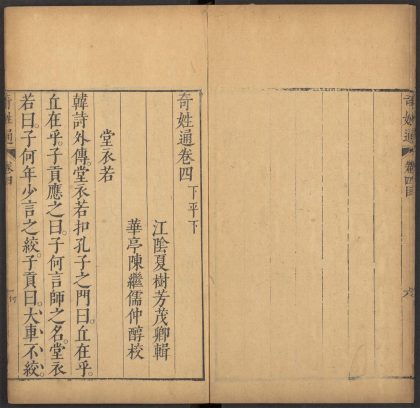 奇姓通
卷四目
六
奇姓通卷四 下平下
江陰夏樹芳茂卿輯
華亭陳繼儒仲醇校
堂衣若
韓詩外傳。堂衣若扣孔子之門曰。丘在乎。
丘在乎。子貢應之曰。子何言師之名。堂衣
若曰。子何年少言之絞。子貢曰。大車不絞
奇姓通
卷四
一